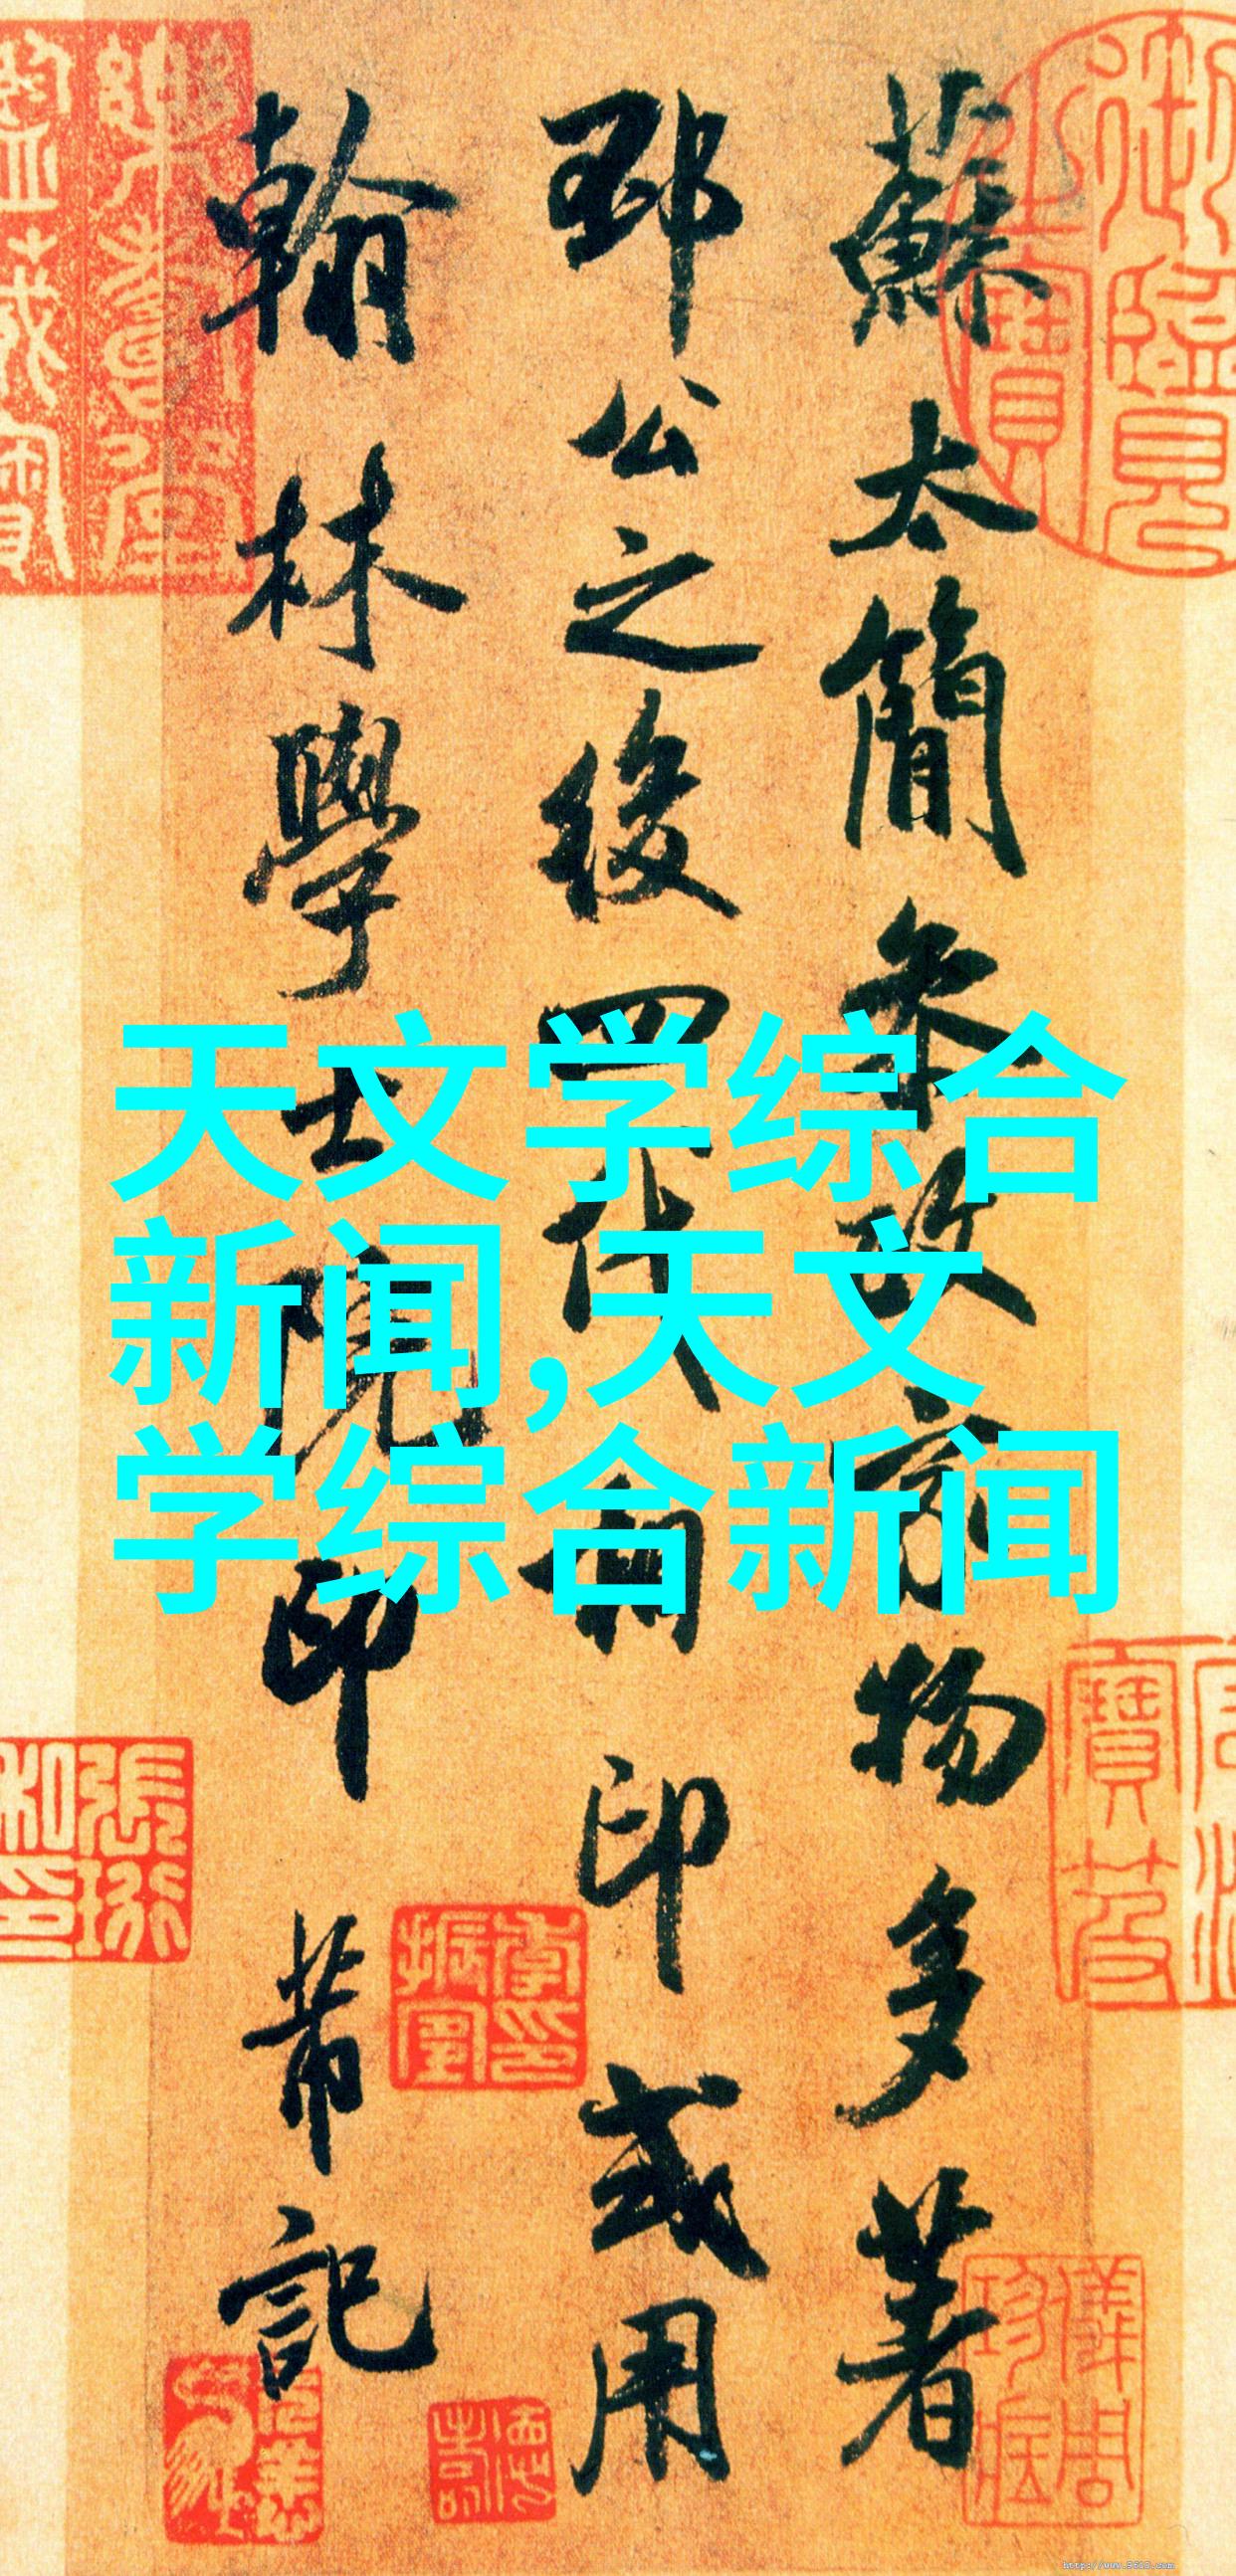 蘇太簡參政家物多著
邳公之後四代相印或用
翰林學士院印 芾記
天文学综合
新闻,天文
学综合新闻